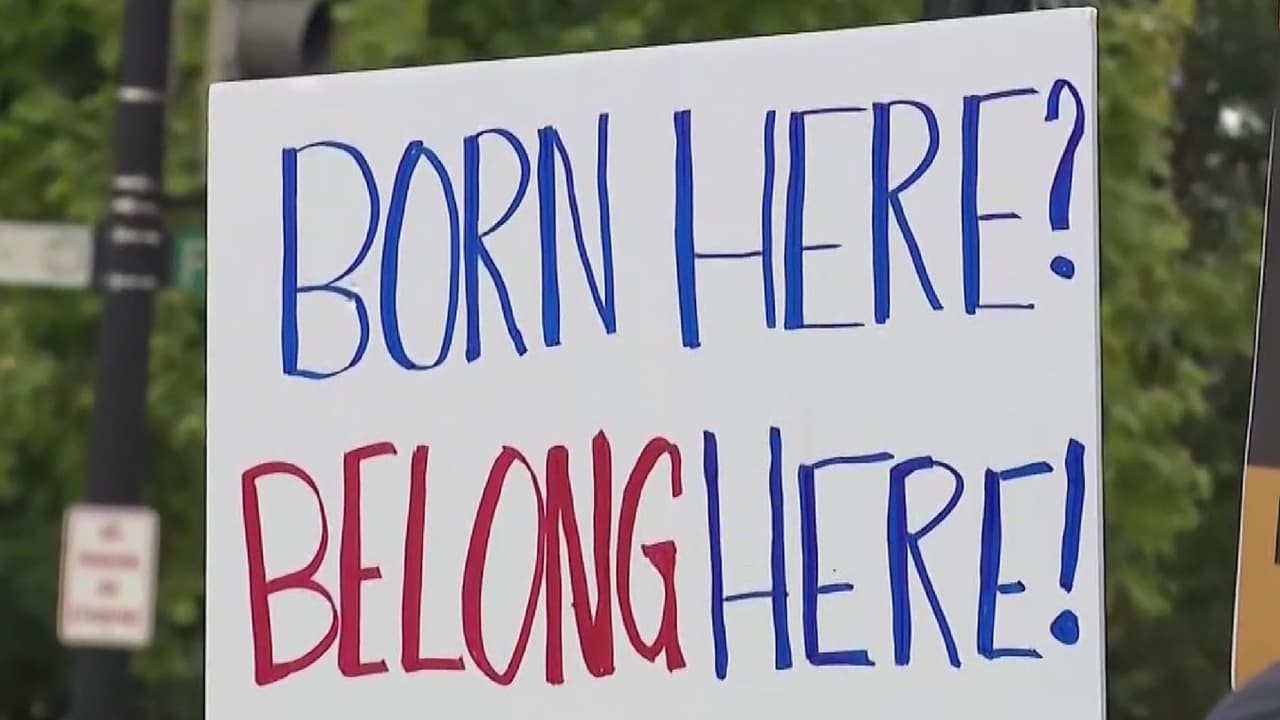 BORN HERE?
BELONG HERE!